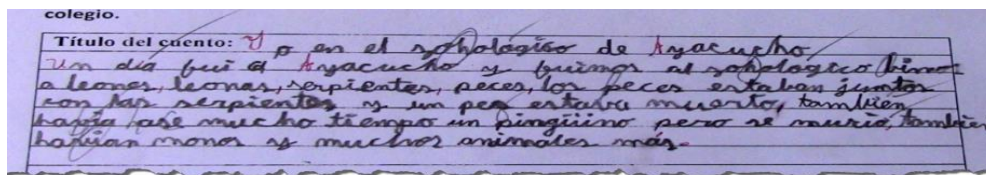 colegio.
Título del cuento: Yo en el sohológico de Ayacucho
un día fui a Ayacucho y fuimos al sohológico bimos
a leones, leonas, serpientes, peces, los peces estaban juntos
con las serpientes y un pez estava muerto, también
havia ase mucho tiempo un pingüino pero se murio, tambien
havian monos y muchos animales más.